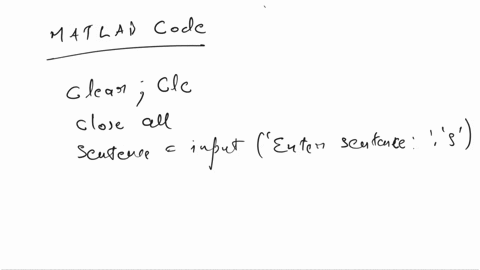 MATLAB Code
Clear; Clc
Close all
Sentence = input ('Enter sentence: ','s')